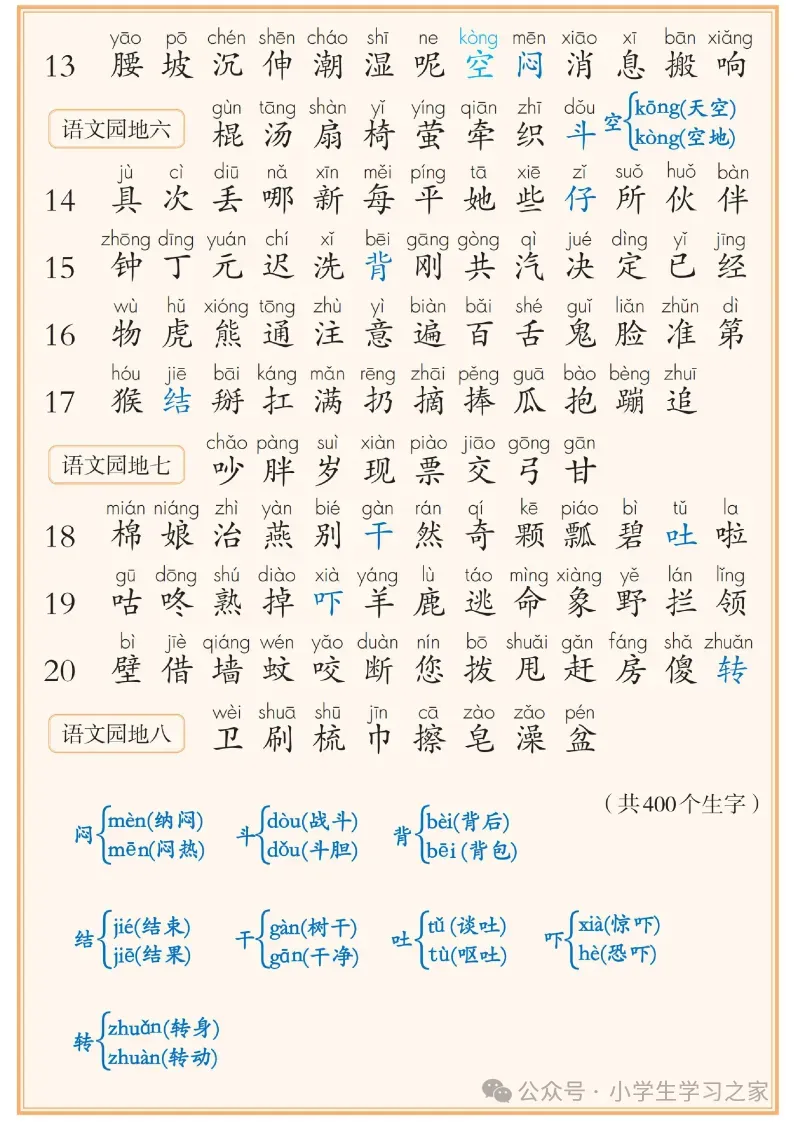 yāo pō chén shēn cháo shī ne kòng mēn xiāo xī bān xiǎng
13 腰 坡 沉 伸 潮 湿 呢 空 闷 消 息 搬 响
gùn tāng shàn yǐ yíng qiān zhī dǒu
语文园地六 棍 汤 扇 椅 萤 牵 织 斗
空 kōng(天空)
kòng(空地)
jù cì diū nǎ xīn měi píng tā xiē zǐ suǒ huǒ bàn
14 具 次 丢 哪 新 每 平 她 些 仔 所 伙 伴
zhōng dīng yuán chí xǐ bēi gāng gòng qì jué dìng yǐ jīng
15 钟 丁 元 迟 洗 背 刚 共 汽 决 定 已 经
wù hǔ xióng tōng zhù yì biàn bǎi shé guǐ liǎn zhǔn dì
16 物 虎 熊 通 注 意 遍 百 舌 鬼 脸 准 第
hóu jiē bāi káng mǎn rēng zhāi pěng guā bào bèng zhuī
17 猴 结 掰 扛 满 扔 摘 捧 瓜 抱 蹦 追
chǎo pàng suì xiàn piào jiāo gōng gān
语文园地七 吵 胖 岁 现 票 交 弓 甘
mián niáng zhì yàn bié gàn rán qí kē piáo bì tǔ la
18 棉 娘 治 燕 别 干 然 奇 颗 瓢 碧 吐 啦
gū dōng shú diào xià yáng lù táo mìng xiàng yě lán lǐng
19 咕 咚 熟 掉 吓 羊 鹿 逃 命 象 野 拦 领
bì jiè qiáng wén yǎo duàn nín bō shuǎi gǎn fáng shǎ zhuǎn
20 壁 借 墙 蚊 咬 断 您 拨 甩 赶 房 傻 转
wèi shuā shū jīn cā zào zǎo pén
语文园地八 卫 刷 梳 巾 擦 皂 澡 盆
(共400个生字)
闷 mèn(纳闷) 斗 dòu(战斗) 背 bèi(背后)
mēn(闷热) dǒu(斗胆) bēi(背包)
结 jié(结束) 干 gàn(树干) 吐 tǔ(谈吐) 吓 xià(惊吓)
jiē(结果) gān(干净) tù(呕吐) hè(恐吓)
转 zhuǎn(转身)
zhuàn(转动)
公众号·小学生学习之家